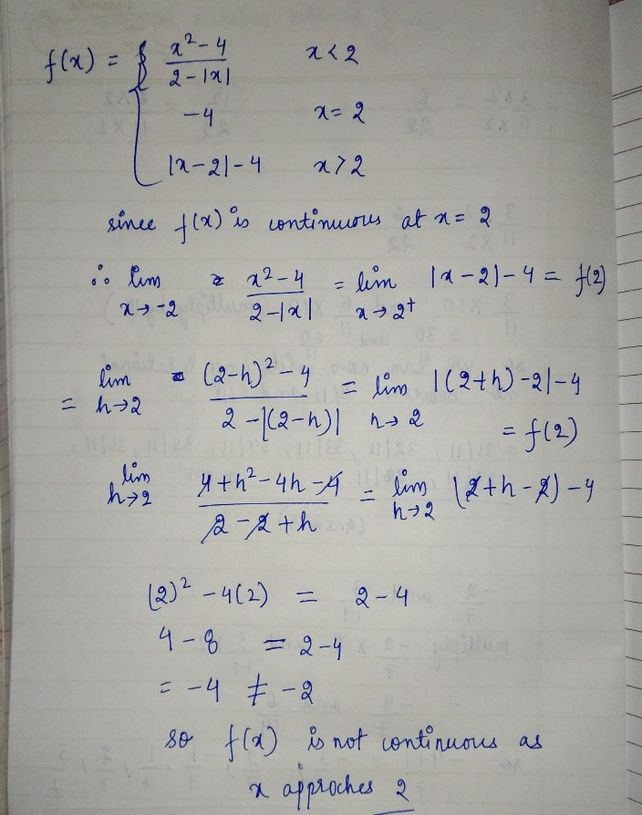 f(x) = { x² - 4 / 2 - |x|    x < 2
-4    x = 2
|x - 2| - 4    x > 2
since f(x) is continuous at x = 2
∴ lim x→-2 x² - 4 / 2 - |x| = lim x→2⁺ |x - 2| - 4 = f(2)
= lim h→2 (2-h)² - 4 / 2 - |(2-h)| = lim h→2 |(2+h) - 2| - 4
= f(2)
lim h→2 4 + h² - 4h - 4 / 2 - 2 + h = lim h→2 (2 + h - 2) - 4
(2)² - 4(2) = 2 - 4
4 - 8 = 2 - 4
= -4 ≠ -2
so f(x) is not continuous as
x approches 2